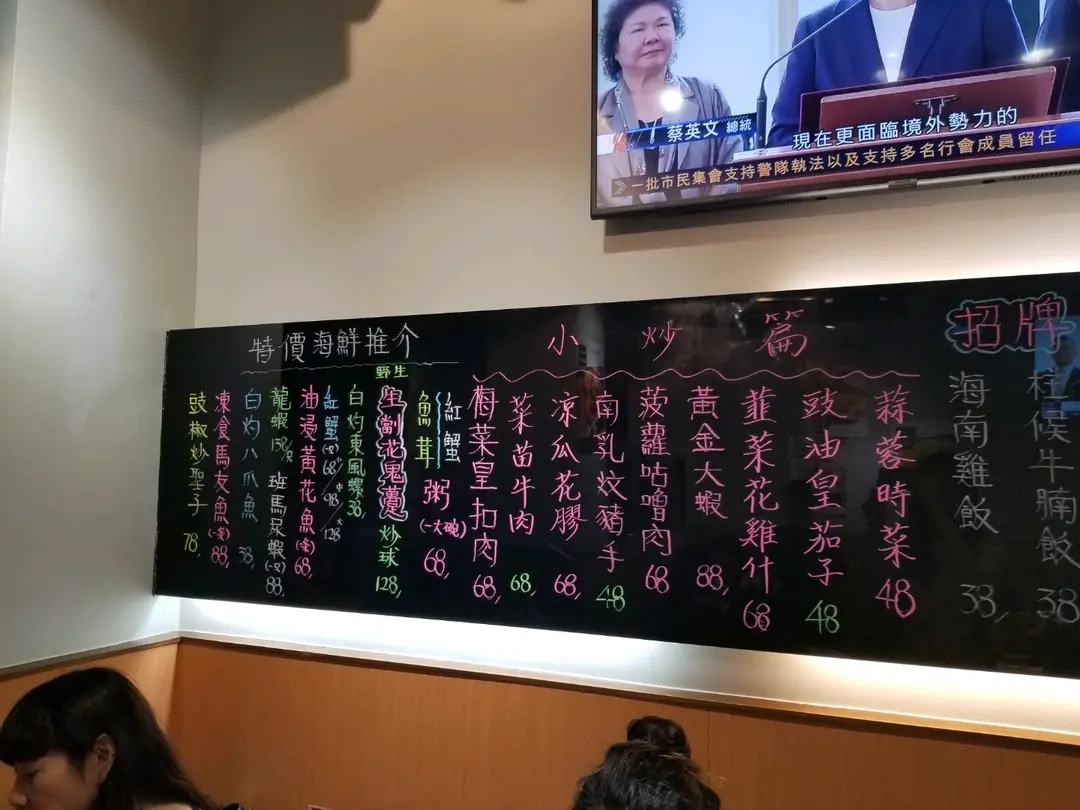 蔡英文 總統
現在更面臨境外勢力的
一批市民集會支持警隊執法以及支持多名行會成員留任
招牌
柱侯牛腩飯 38
海南雞飯 38,
小炒篇
蒜蓉時菜 48
豉油皇茄子 48
韮菜花雞什 68
黃金大蝦 88,
菠蘿咕嚕肉 68
南乳炆豬手 48
凉瓜花膠 68,
菜苗牛肉 68,
梅菜皇扣肉 68,
特價海鮮推介
紅蟹
魚茸
粥(一大碗) 68,
野生
生劏花鬼躉
炒球 128,
白灼東風螺 38
紅蟹(一只) 68/中98/大128
油浸黃花魚(一条) 68,
龍蝦 158/只
班馬尿蝦(一只) 88,
白灼八爪魚 38,
凍食馬友魚(一条) 88,
豉椒炒聖子 78,